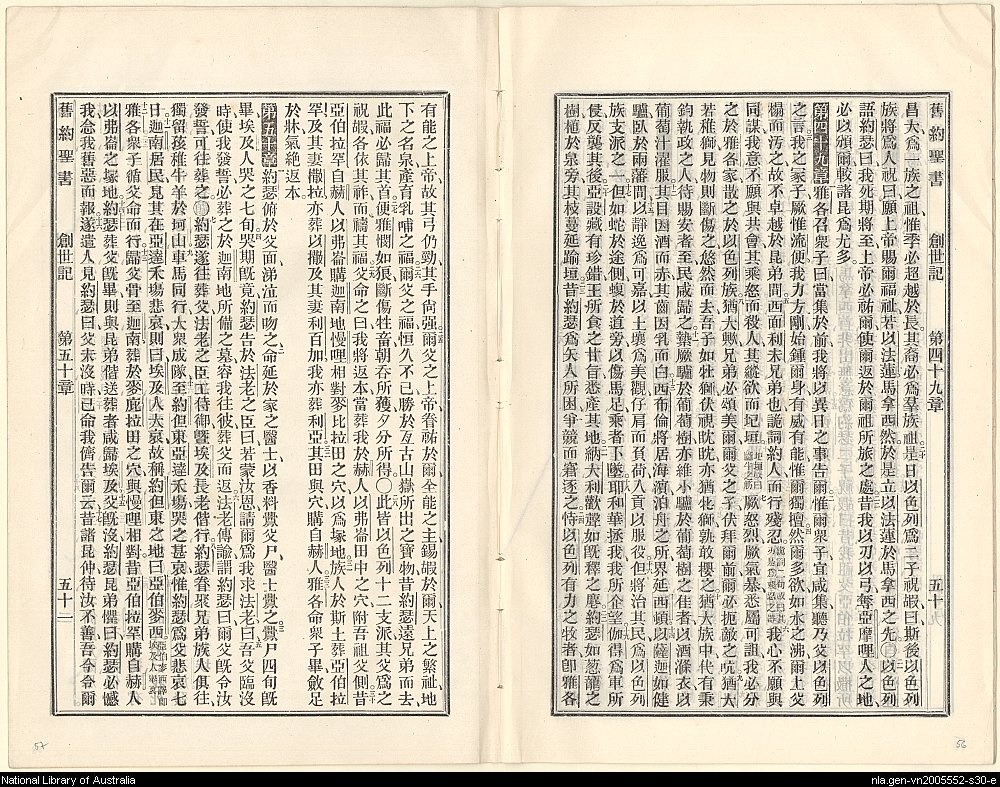 舊約聖書 創世記 第四十九章 五十九
昌大為一族之祖惟季必超越於長其裔必為羣族祖是日以色列為二子祝嘏曰斯後以色列
族將為人祝曰願上帝賜爾福祉若以法蓮馬拿西然於是立以法蓮於馬拿西之先〇以色列
語約瑟曰我死期將至上帝必祐爾使爾返於爾祖所旅之處昔我以刃以弓奪亞摩哩人之地
必以頒爾較諸昆為尤多
第四十九章雅各召衆子曰當集於前我將以異日之事告爾惟爾衆子宜咸集聽乃父以色列
之言我之冢子厥惟流便我力方剛始鍾爾身有威有能惟爾獨擅然爾多欲如水之沸爾上父
榻而汚之故不卓越於昆弟間西面利未兄弟也詭詞約人而行殘忍
同謀我意不願與共會其乘怒而殺人其縱欲而圮垣厥怒烈厥氣暴悉屬可詛我必分
之於雅各家散之於以色列族猶大歟兄弟必頌美爾爾父之子伏拜爾前爾必扼敵之吭猶大
若稚獅見物則斷傷之悠然而去吾子如牡獅伏視眈眈亦猶牝獅孰敢攖之猶大族中代有秉
鈞執政之人待賜安者至民咸歸之縶厥驢於葡萄樹亦維小驢於葡萄樹之佳者以酒滌衣以
葡萄汁濯服其目因酒而赤其齒因乳而白西布倫將居海濱泊舟之所界延西頓以薩迦如健
驢臥於兩藩間以靜逸為可嘉以土壤為美觀仔肩而負荷入貢以服役但將治其民為以色列
族支派之一但如蛇於途側蝮於道旁以傷馬足乘者下墜耶和華拯我我所企望伽得為軍所
侵反襲其後亞設藏有珍錯王所食之甘旨悉產其地納大利歡聲如旣釋之麀約瑟如葱蘢之
樹植於泉旁其枝蔓延踰垣昔約瑟為矢人所困爭競而窘逐之恃以色列有力之牧者卽雅各
有能之上帝故其弓仍勁其手尙强爾父之上帝眷祐於爾全能之主錫嘏於爾天上之繁祉地
下之名泉產育乳哺之福爾父之福恒久不已勝於亙古山嶽所出之寶物昔約瑟遠兄弟而去
此福必歸其首便雅憫如狼斷傷牲畜朝吞所獲夕分所得〇此皆以色列十二支派其父為之
祝嘏各依其祚而禱其福父命之曰我將返本當葬我於赫人以弗崙田中之穴附吾祖父側昔
亞伯拉罕自赫人以弗崙購迦南地慢哩相對麥比拉田之穴以為塚地族人於斯土葬亞伯拉
罕及其妻撒拉亦葬以撒及其妻利百加我亦葬利亞其田與穴購自赫人雅各命衆子畢斂足
於牀氣絶返本
第五十章約瑟俯於父面涕泣而吻之命延於家之醫士以香料釁父尸醫士釁之釁尸四旬旣
畢埃及人哭之七旬哭期旣竟約瑟告於法老之臣曰若蒙汝恩請爾為我求法老曰吾父臨沒
時使我發誓必葬之於迦南地所備之墓容我往彼葬父而返法老傳諭謂約瑟曰爾父旣令汝
發誓可往葬之〇約瑟遂往葬父法老之臣王侍御曁埃及長老偕行約瑟眷聚兄弟族人俱往
獨留孩稚牛羊於坷山車馬同行大衆成隊至約但東亞達禾塲哭之甚哀惟約瑟為父悲哀七
日迦南居民見其在亞達禾塲悲哀則曰埃及人大哀故稱約但東之地曰亞伯麥西
雅各衆子循父命而行歸父骨至迦南葬於麥庇拉田之穴與慢哩相對昔亞伯拉罕購自赫人
以弗崙之塚地約瑟葬父旣畢則與昆弟偕送葬者咸歸埃及父旣沒約瑟昆弟懼曰約瑟必憾
我念我舊惡而報遂遣人見約瑟曰父未沒時已命我儕告爾云昔諸昆仲待汝不善吾今令爾
舊約聖書 創世記 第五十章 五十一
57
56
National Library of Australia
nla.gen-vn2005552-s30-e